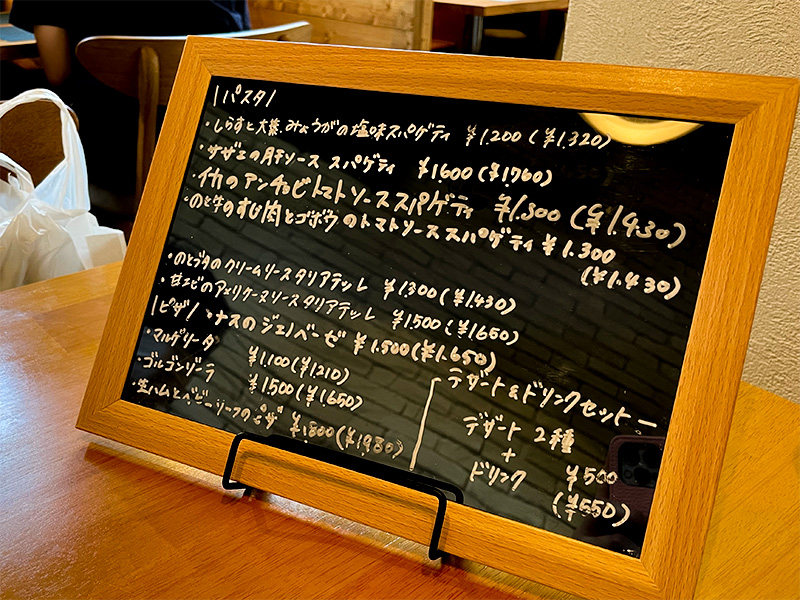 |パスタ|
・しらすと大葉、みょうがの塩味スパゲティ ¥1.200(¥1.320)
・サザエの肝ソース スパゲティ ¥1600(¥1.760)
・イカのアンチョビトマトソーススパゲティ ¥1.300(¥1.430)
・のと牛のすじ肉とゴボウのトマトソーススパゲティ ¥1.300
(¥1.430)
・のとブタのクリームソースタリアテッレ ¥1300(¥1.430)
・甘エビのアメリケーヌソースタリアテッレ ¥1.500(¥1650)
|ピザ| ・ナスのジェノベーゼ ¥1.500(¥1.650)
・マルゲリータ ¥1.100(¥1210)
・ゴルゴンゾーラ ¥1.500(¥1.650)
・生ハムとベビーリーフのピザ ¥1.800(¥1.980)
デザート&ドリンクセット
デザート 2種
+
ドリンク ¥500
(¥550)